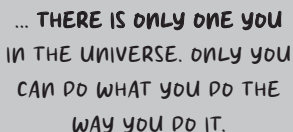 ... THERE IS ONLY ONE YOU
IN THE UNIVERSE. ONLY YOU
CAN DO WHAT YOU DO THE
WAY YOU DO IT.